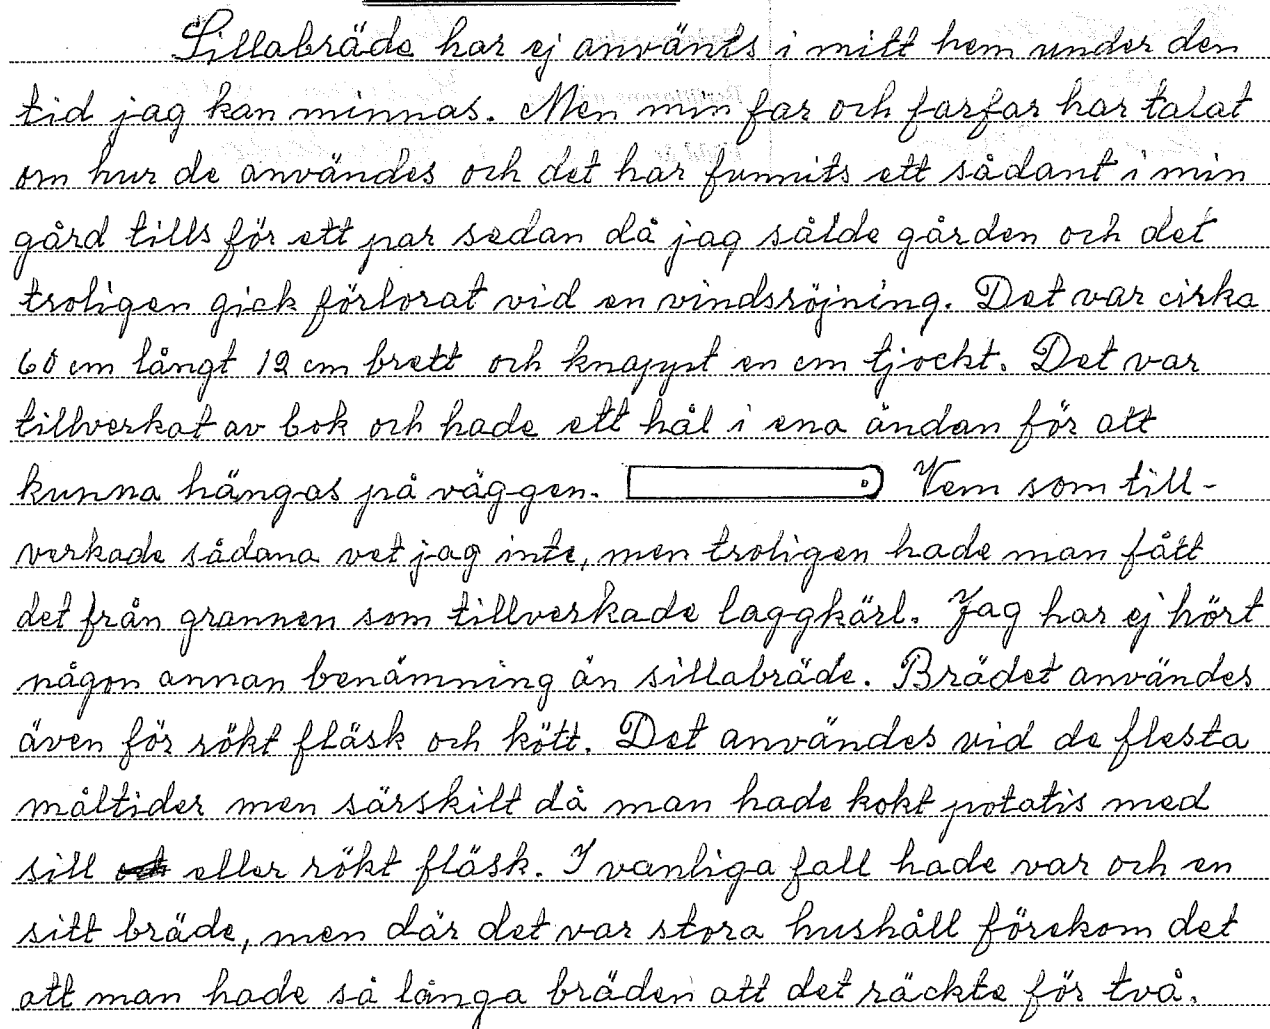 Sillabräde har ej använts i mitt hem under den
tid jag kan minnas. Men min far och farfar har talat
om hur de användes och det har funnits ett sådant i min
gård tills för ett par sedan då jag sålde gården och det
troligen gick förlorat vid en vindsröjning. Det var cirka
60 cm långt 12 cm brett och knappt en cm tjockt. Det var
tillverkat av bok och hade ett hål i ena ändan för att
kunna hängas på väggen. Vem som till-
verkade sådana vet jag inte, men troligen hade man fått
det från grannen som tillverkade laggkärl. Jag har ej hört
någon annan benämning än sillabräde. Brädet användes
även för rökt fläsk och kött. Det användes vid de flesta
måltider men särskilt då man hade kokt potatis med
sill eller rökt fläsk. I vanliga fall hade var och en
sitt bräde, men där det var stora hushåll förekom det
att man hade så långa bräden att det räckte för två.